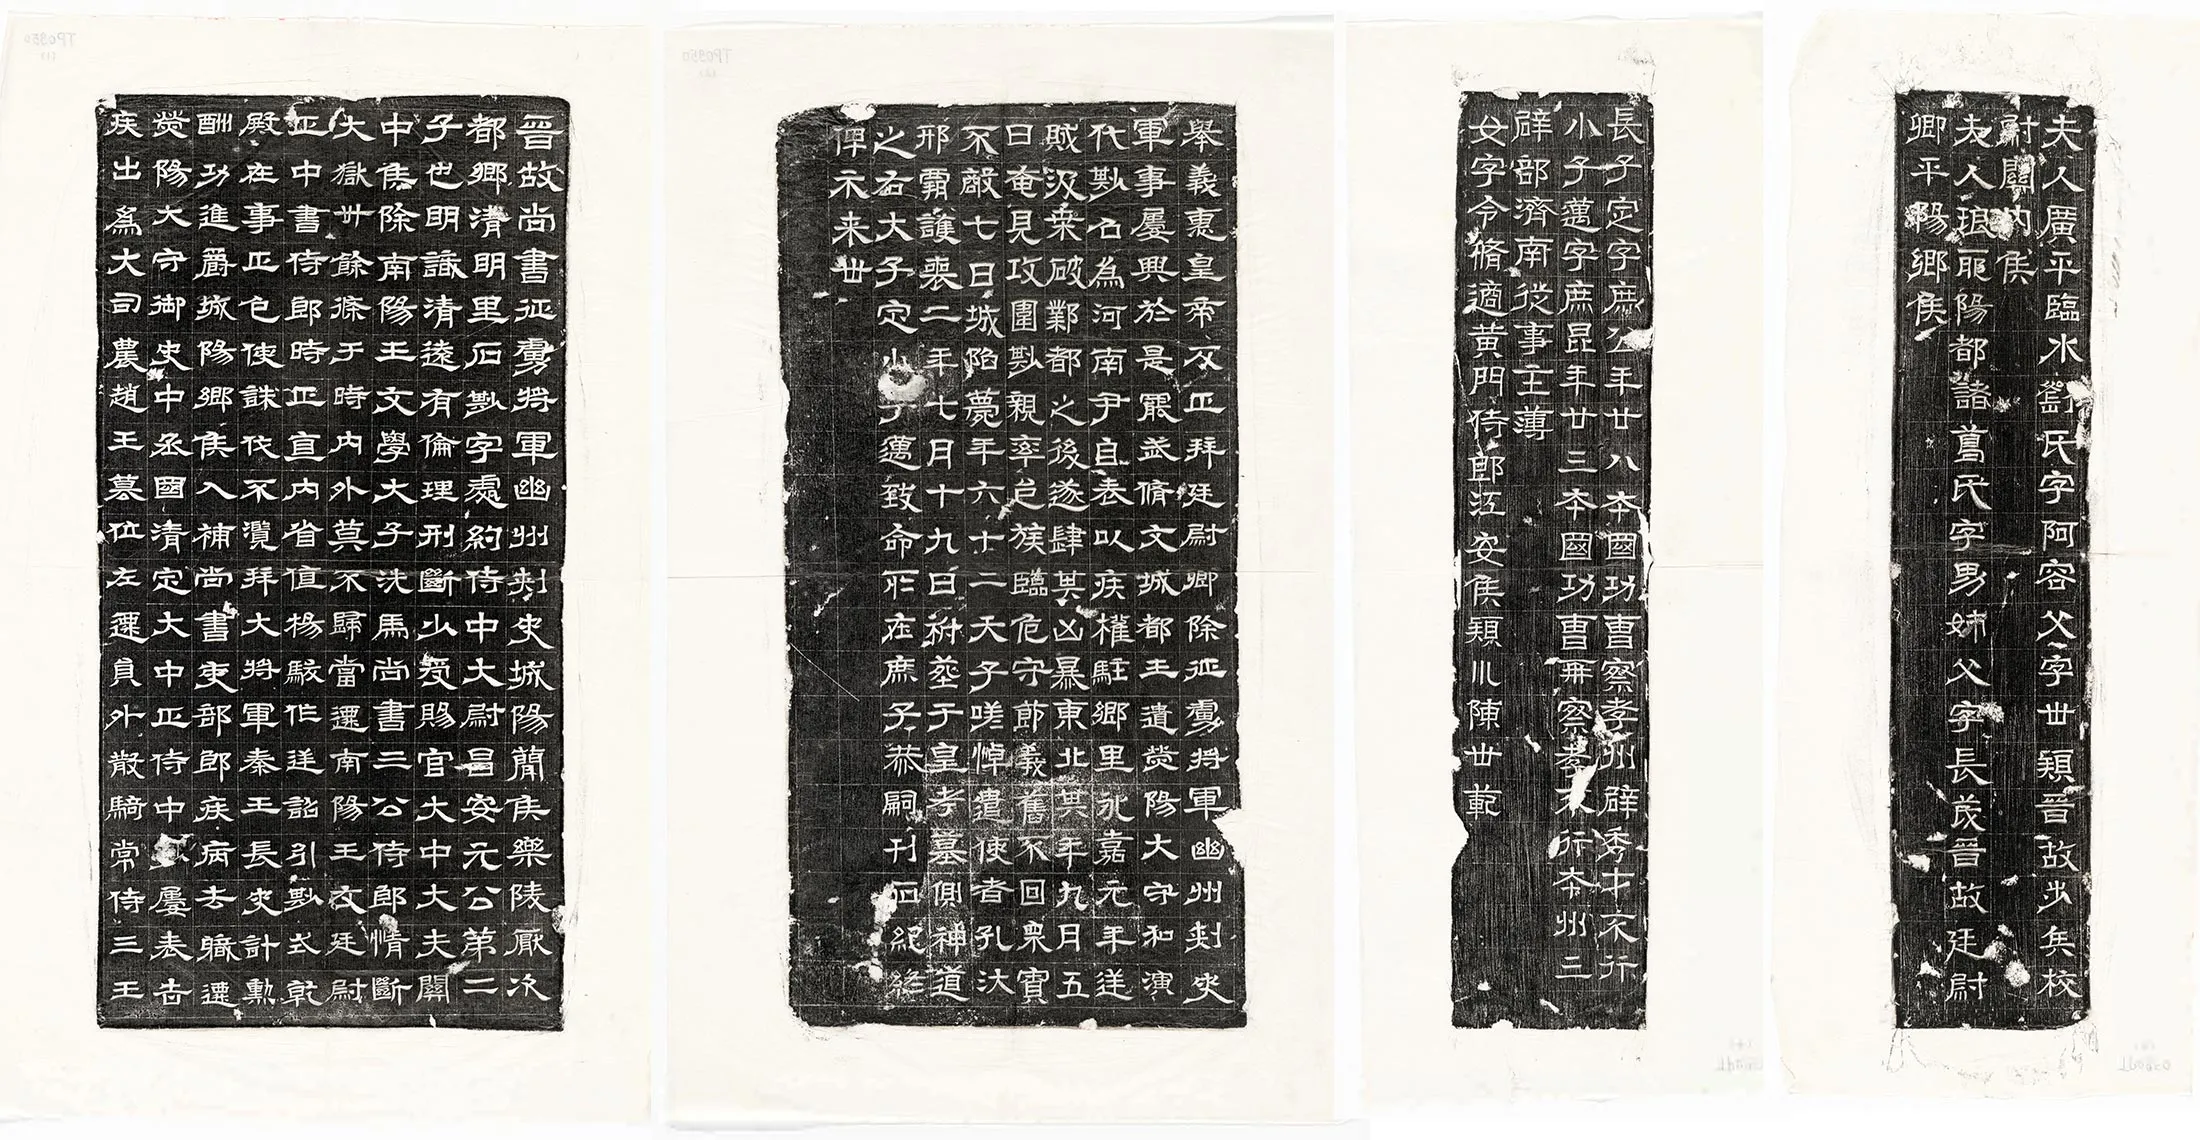 晉故尚書征虜將軍幽州刺史城陽簡侯樂陵厭次
都鄉清明里石尠字處約侍中大尉昌安元公第二
子也明識清遠有倫理刑斷少受賜官大中大夫關
中侯除南陽王文學大子洗馬尚書三公侍郎情斷
大獄卅餘條于時內外莫不歸當遷南陽王友廷尉
正中書侍郎時正直內省值楊駿作逆詔引尠式乾
殿在事正色使誅伐不濫拜大將軍秦王長史計勳
酬功進爵城陽鄉侯入補尚書吏部郎疾病去職遷
滎陽大守御史中丞國清定大中正侍中屢表告
疾出為大司農趙王篡位左遷員外散騎常侍三王
舉義惠皇帝反正拜廷尉卿除征虜將軍幽州刺史
軍事屢興於是罷武脩文城都王遣滎陽大守和演
代尠召為河南尹自表以疾權駐鄉里永嘉元年逆
賊汲桑破鄴都之後遂肆其凶暴東北其年九月五
日奄見攻圍尠親率邑族臨危守節義舊不回眾寡
不敵七日城陷薨年六十二天子嗟悼遣使者孔汏
邢霸護喪二年七月十九日祔葬于皇考墓側神道
之右大子定小子邁致命所在庶子恭嗣刊石紀終
俾示来世
長子定字庶公年廿八本國功曹察孝州辟秀才不行
小子邁字庶昆年廿三本國功曹再察孝不行本州三
辟部濟南從事主薄
女字令脩適黃門侍郎江安侯穎川陳世範
夫人廣平臨水劉氏字阿容父字世穎晉故步兵校
尉關內侯
夫人琅耶陽都諸葛氏字男姊父字長茂晉故廷尉
卿平陽鄉侯